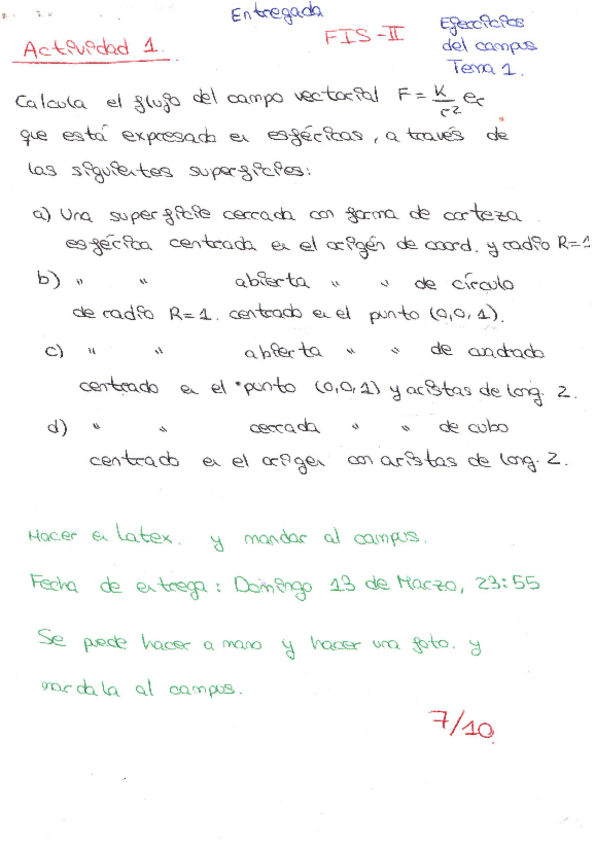 Entregada
Actividad 1.
FIS-II
Ejercicios
del campus
Tema 1.
Calcula el flujo del campo vectorial F = K/r² er
que está expresado en esféricas, a través de
las siguientes superficies:
a) Una superficie cerrada con forma de corteza
esférica centrada en el origén de coord. y radio R=1
b) " " abierta " " de círculo
de radio R=1. centrado en el punto (0,0,1).
c) " " abierta " " de cuadrado
centrado en el punto (0,0,1) y aristas de long. 2.
d) " " cerrada " " de cubo
centrado en el origen con aristas de long. 2.
Hacer en latex. y mandar al campus.
Fecha de entrega: Domingo 13 de Marzo, 23:55
Se puede hacer a mano y hacer una foto. y
mandala al campus.
7/10